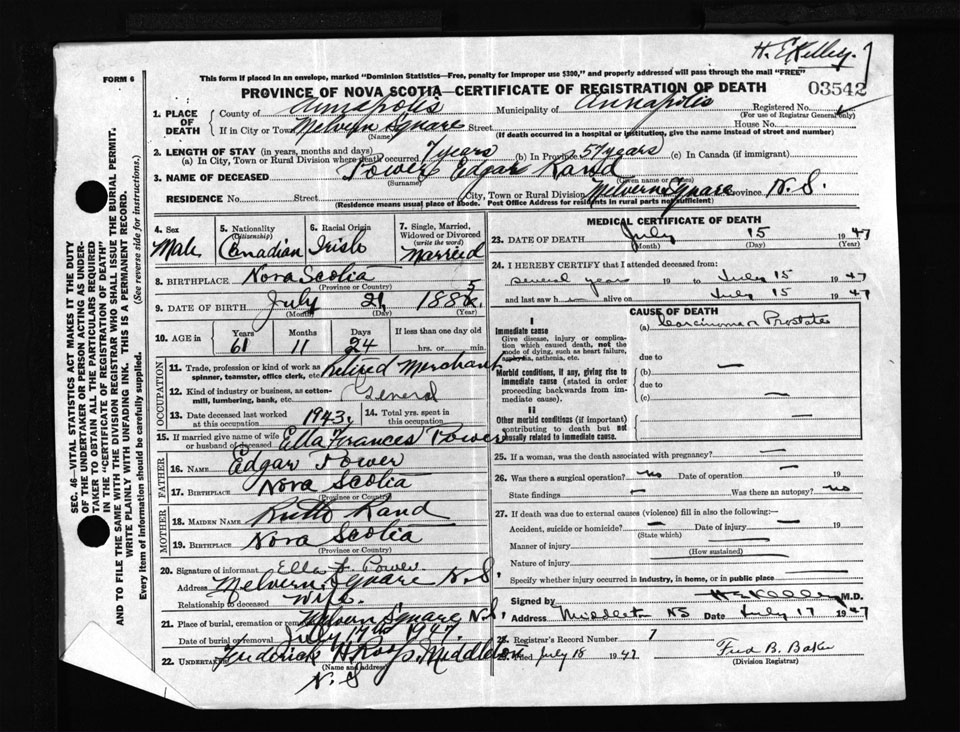 H. E. Kelley
FORM 6
This form if placed in an envelope, marked "Dominion Statistics—Free, penalty for improper use $300," and properly addressed will pass through the mail "FREE"
PROVINCE OF NOVA SCOTIA—CERTIFICATE OF REGISTRATION OF DEATH
03542
1. PLACE OF DEATH
County of Annapolis Municipality of Annapolis Registered No.
(For use of Registrar General only)
If in City or Town Melvern Square Street House No.
(Name) (If death occurred in a hospital or institution, give the name instead of street and number)
2. LENGTH OF STAY (in years, months and days)
(a) In City, Town or Rural Division where death occurred 7 years (b) In Province 57 years (c) In Canada (if immigrant)
3. NAME OF DECEASED Power Edgar Rand
(Surname) (Given name or names)
RESIDENCE No. Street City, Town or Rural Division Melvern Square Province N.S.
(Residence means usual place of abode. Post Office Address for residents in rural parts not sufficient)
4. Sex Male
5. Nationality (Citizenship) Canadian
6. Racial Origin Irish
7. Single, Married, Widowed or Divorced (write the word) Married
8. BIRTHPLACE Nova Scotia
(Province or Country)
9. DATE OF BIRTH July 21 1885
(Month) (Day) (Year)
10. AGE in Years Months Days If less than one day old
61 11 24 hrs. or min.
OCCUPATION
11. Trade, profession or kind of work as spinner, teamster, office clerk, etc. Retired Merchant
12. Kind of industry or business, as cotton-mill, lumbering, bank, etc. General
13. Date deceased last worked at this occupation 1943
14. Total yrs. spent in this occupation
15. If married give name of wife or husband of deceased Ella Frances Power
FATHER
16. NAME Edgar Power
17. BIRTHPLACE Nova Scotia
(Province or Country)
MOTHER
18. MAIDEN NAME Ruth Rand
19. BIRTHPLACE Nova Scotia
(Province or Country)
20. Signature of informant Ella F. Power
Address Melvern Square N.S.
Relationship to deceased Wife
21. Place of burial, cremation or removal Melvern Square N.S.
Date of burial or removal July 17th 1947.
22. Undertaker Frederick H Roop, Middleton
(Name and address)
N.S
MEDICAL CERTIFICATE OF DEATH
23. DATE OF DEATH July 15 1947
(Month) (Day) (Year)
24. I HEREBY CERTIFY that I attended deceased from:
several years 19 to July 15 1947
and last saw h alive on July 15 1947
CAUSE OF DEATH
I
Immediate cause
Give disease, injury or complication which caused death, not the mode of dying, such as heart failure, asphyxia, asthenia, etc.
(a) Carcinoma Prostate
due to
Morbid conditions, if any, giving rise to immediate cause (stated in order proceeding backwards from immediate cause).
(b) —
due to
(c) —
II
Other morbid conditions (if important) contributing to death but not causally related to immediate cause.
25. If a woman, was the death associated with pregnancy? —
26. Was there a surgical operation? no Date of operation —
State findings — Was there an autopsy? no
27. If death was due to external causes (violence) fill in also the following:—
Accident, suicide or homicide? — Date of injury —
(State which)
Manner of injury —
(How sustained)
Nature of injury —
Specify whether injury occurred in industry, in home, or in public place —
Signed by H E Kelley M.D.
Address Middleton NS Date July 17 1947
28. Registrar's Record Number 7
29. Filed July 18 1947 Fred B. Baker
(Division Registrar)
SEC. 46—VITAL STATISTICS ACT MAKES IT THE DUTY
OF THE UNDERTAKER OR PERSON ACTING AS UNDERTAKER
TO OBTAIN ALL THE PARTICULARS REQUIRED
IN THE "CERTIFICATE OF REGISTRATION OF DEATH"
AND TO FILE THE SAME WITH THE DIVISION REGISTRAR WHO SHALL ISSUE THE BURIAL PERMIT.
WRITE PLAINLY WITH UNFADING INK. THIS IS A PERMANENT RECORD.
Every item of information should be carefully supplied. (See reverse side for instructions.)